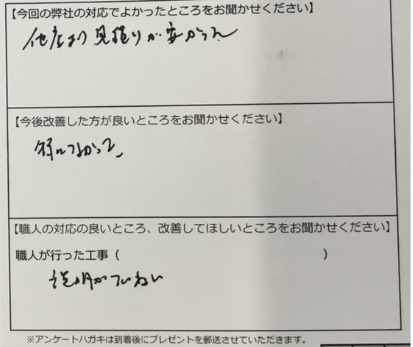 【今回の弊社の対応でよかったところをお聞かせください】
他店より見積りが安かった
【今後改善した方が良いところをお聞かせください】
特になかって
【職人の対応の良いところ、改善してほしいところをお聞かせください】
職人が行った工事（　　　）
説明がていねい
※アンケートハガキは到着後にプレゼントを郵送させていただきます。